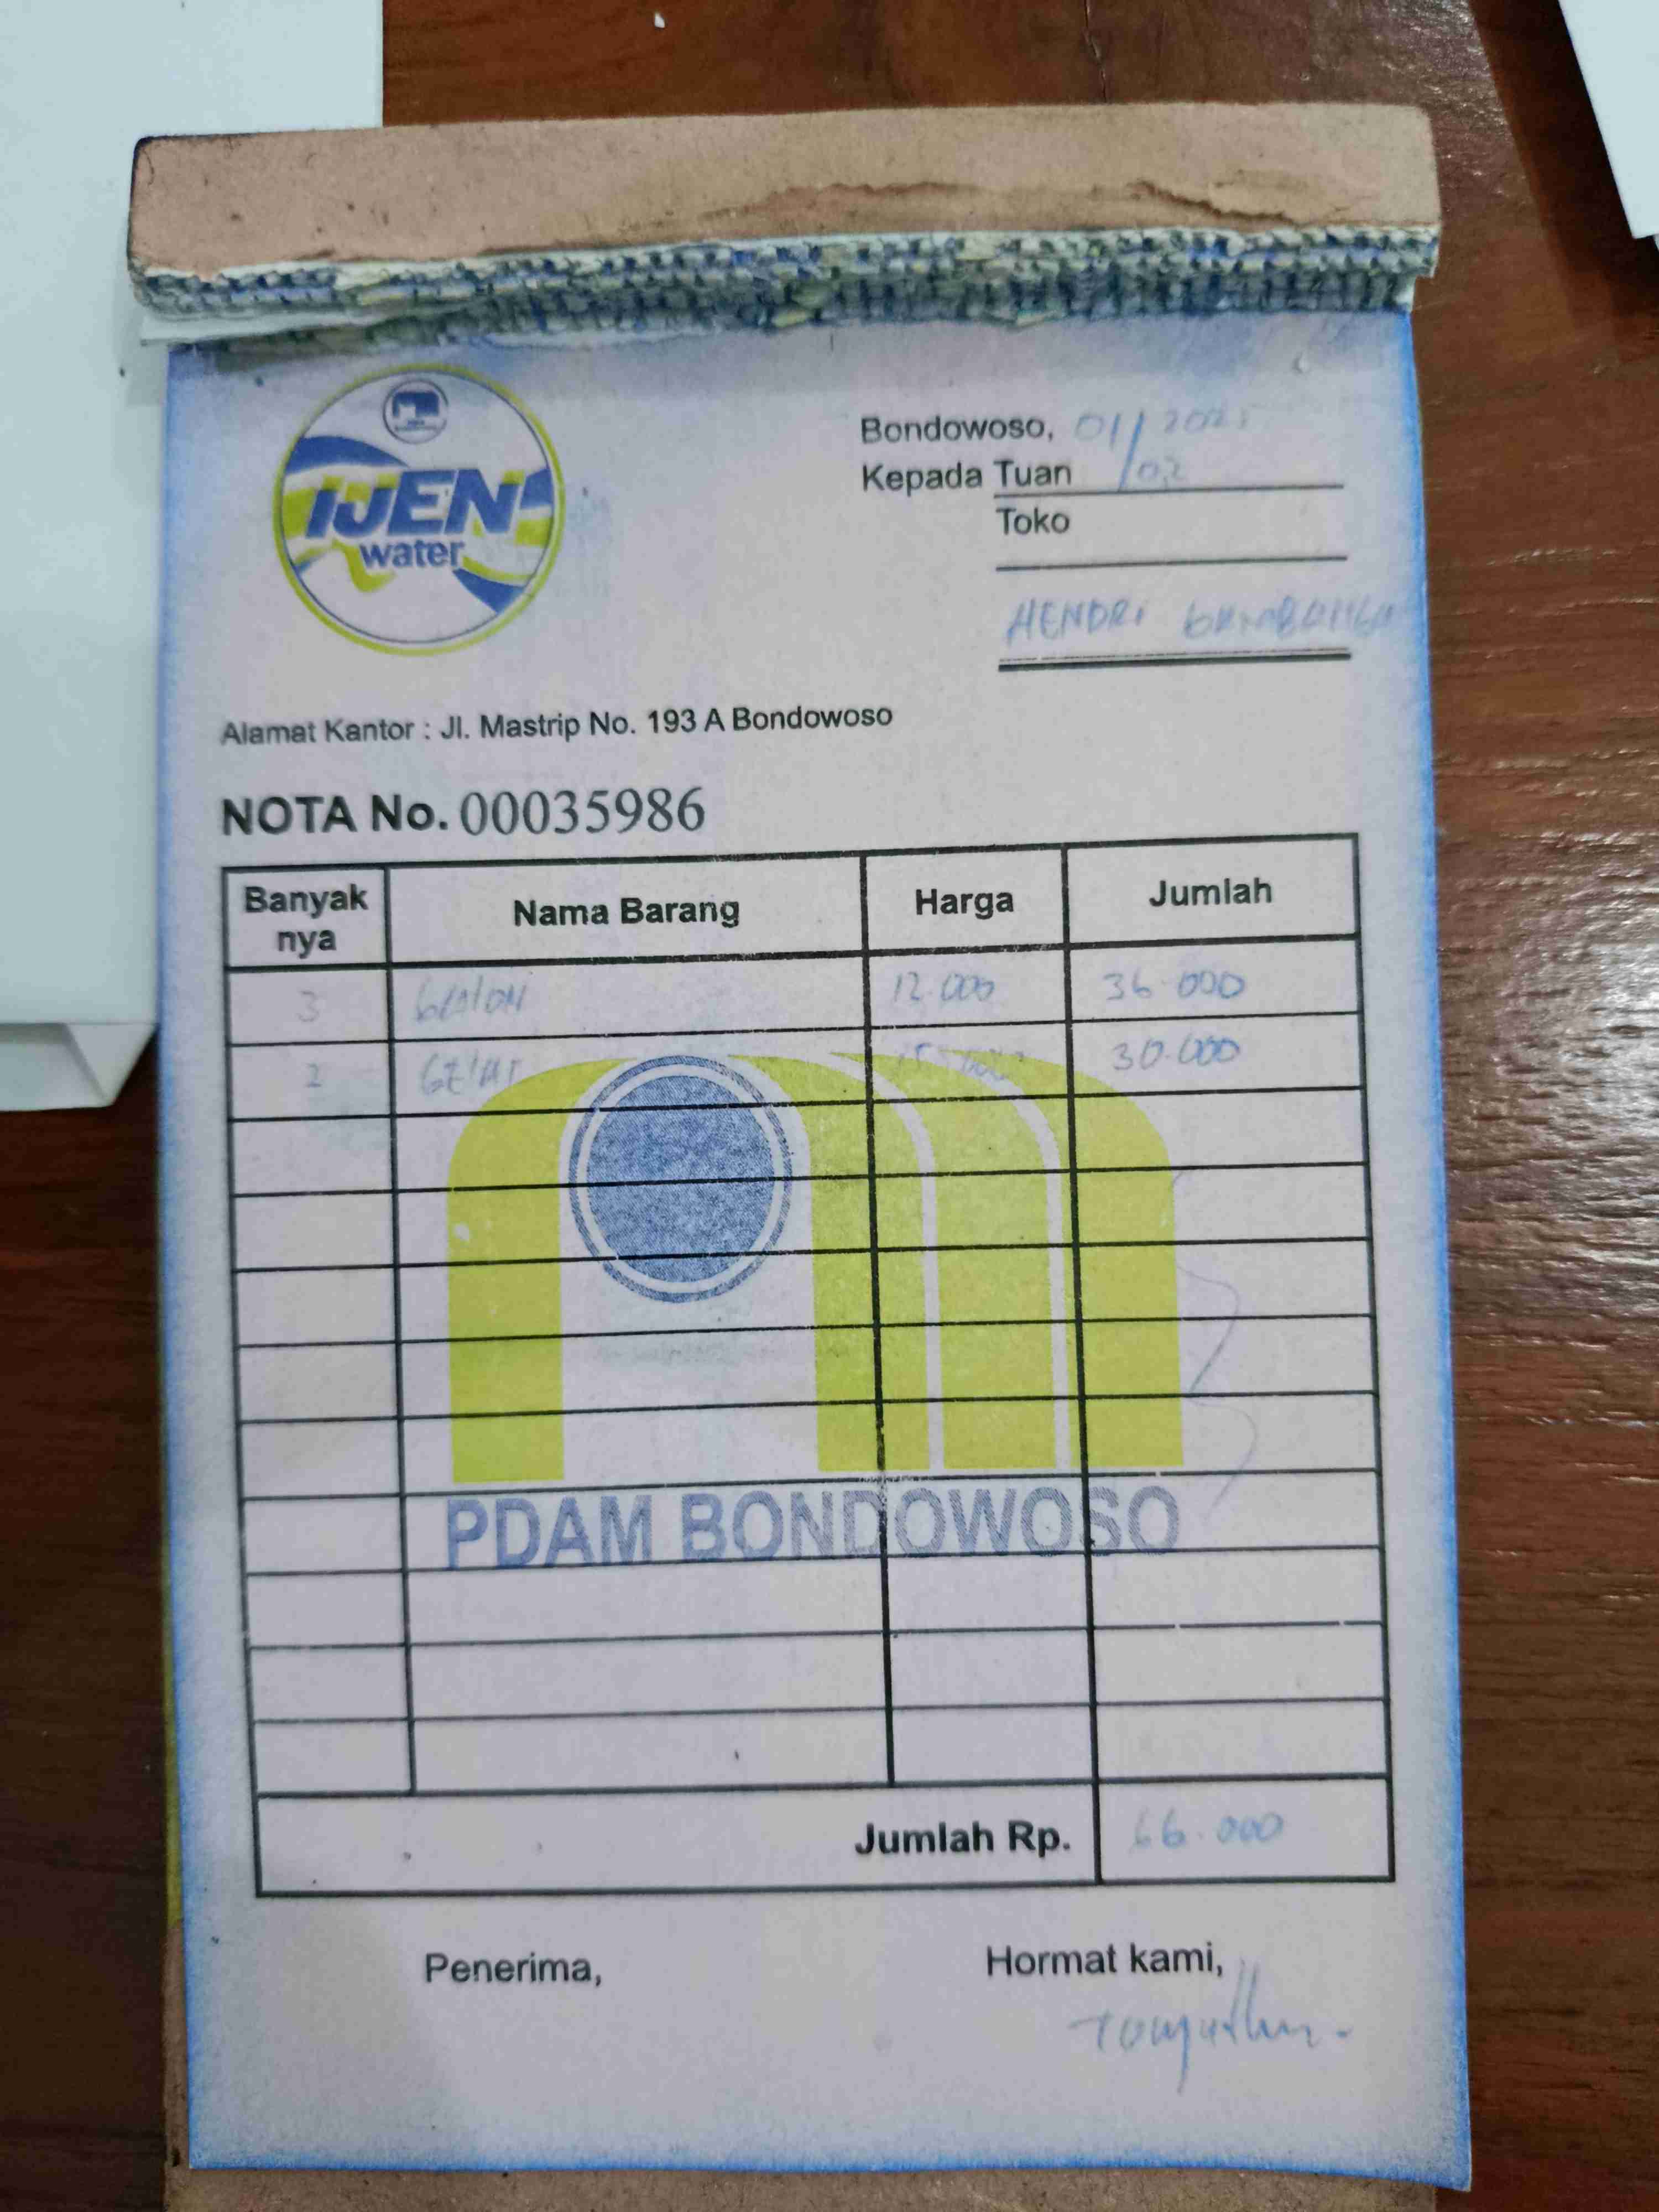 IJEN
water
Bondowoso, 01/02 2025
Kepada Tuan
Toko
HENDRI
Alamat Kantor : Jl. Mastrip No. 193 A Bondowoso
NOTA No. 00035986
Banyak nya Nama Barang Harga Jumlah
3 GALON 12.000 36.000
2 GELAS 15.000 30.000
PDAM BONDOWOSO
Jumlah Rp. 66.000
Penerima, Hormat kami,